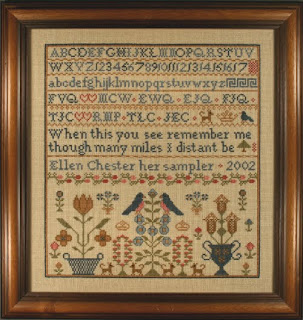 ABCDEFGHIJKLMNOPQRSTUV
WXYZ1234567891011121314151617
abcdefghijklmnopqrstuvwxyz
FVQ MCW EWQ EJQ FJQ
TJC RMP TLC JEC
When this you see remember me
though many miles & distant be
Ellen Chester her sampler 2002